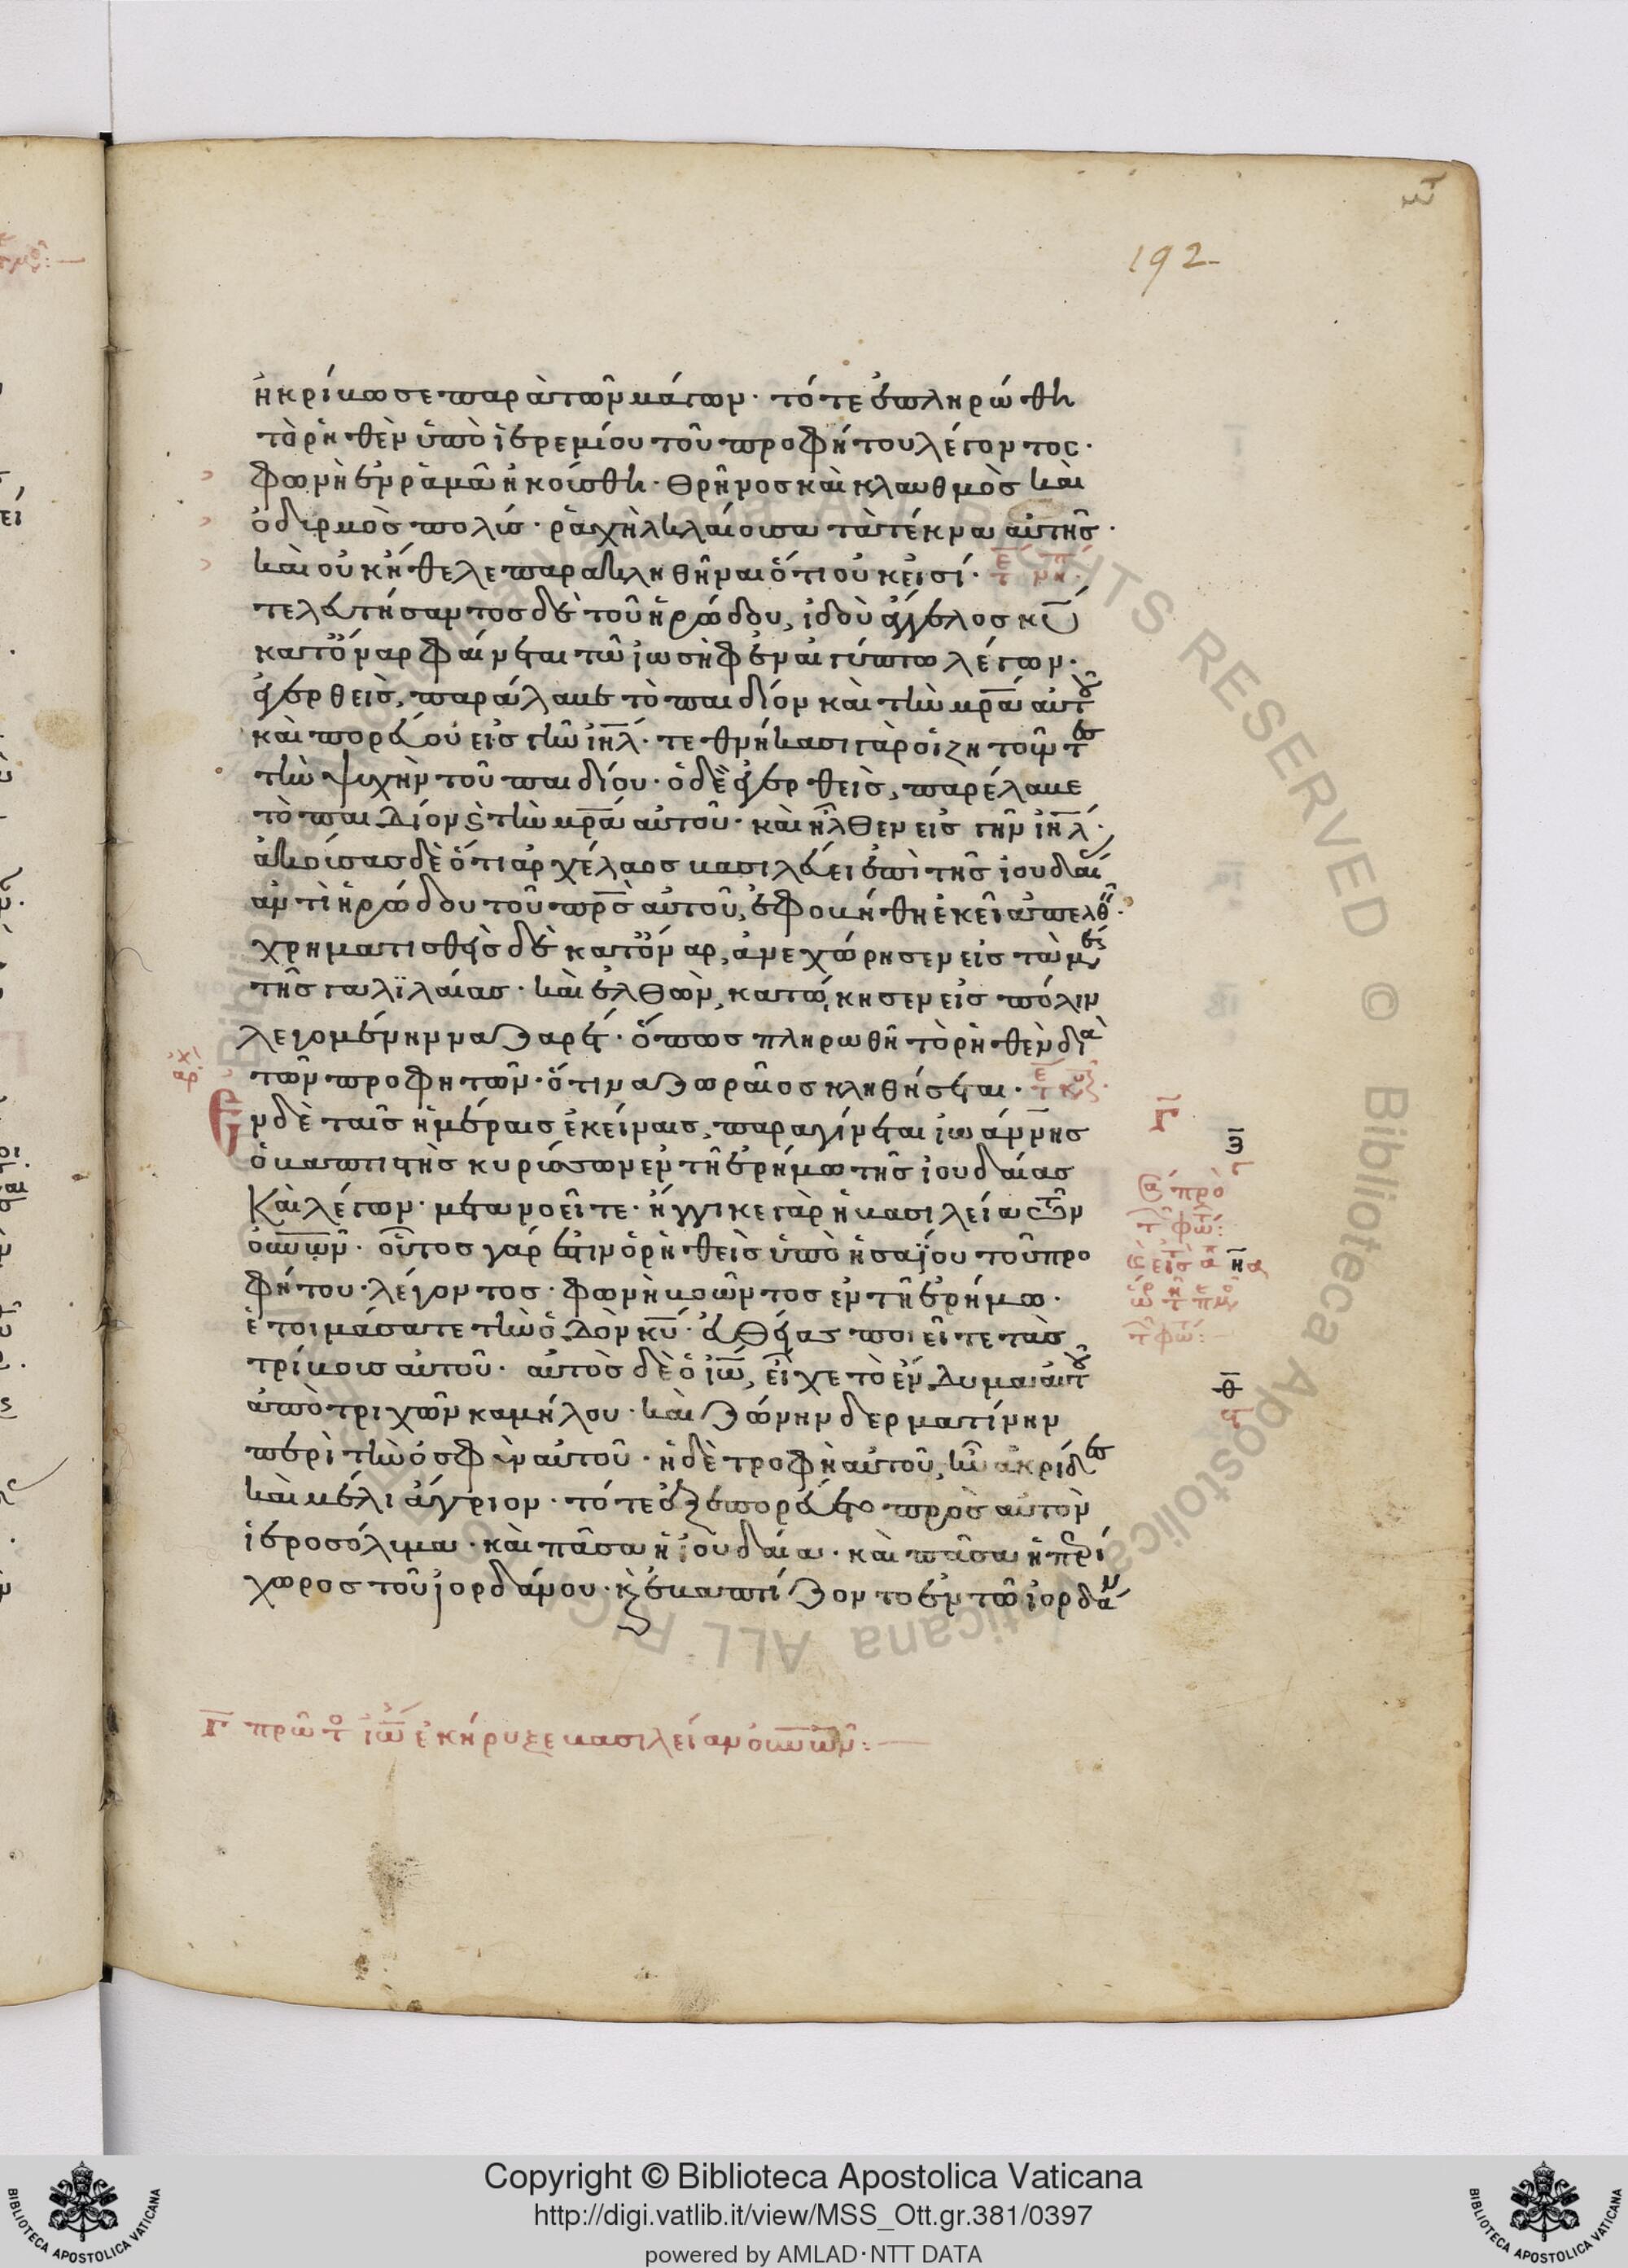 192
ἠκρίβωσε παρὰ τῶν μάγων· τότε ἐπληρώθη
τὸ ῥηθὲν ὑπὸ ἰερεμίου τοῦ προφήτου λέγοντος·
φωνὴ ἐν ῥαμᾶ ἠκούσθη· θρῆνος καὶ κλαυθμὸς καὶ
ὀδυρμὸς πολύς· ῥαχὴλ κλαίουσα τὰ τέκνα αὐτῆς·
καὶ οὐκ ἤθελε παρακληθῆναι ὅτι οὐκ εἰσί·
τελευτήσαντος δὲ τοῦ ἡρώδου, ἰδοὺ ἄγγελος κῡ
κατ' ὄναρ φαίνεται τῶ ἰωσὴφ ἐν αἰγύπτω λέγων·
ἐγερθεὶς, παράλαβε τὸ παιδίον καὶ τὴν μρ̅α αὐτοῦ
καὶ πορεύου εἰς γῆν ἰη̅λ· τεθνήκασι γὰρ οἱ ζητοῦντες
τὴν ψυχὴν τοῦ παιδίου· ὁ δὲ ἐγερθεὶς, παρέλαβε
τὸ παιδίον ϛ τὴν μρ̅α αὐτοῦ· καὶ ἦλθεν εἰς γῆν ἰη̅λ·
ἀκούσας δὲ ὅτι ἀρχέλαος βασιλεύει ἐπὶ τῆς ἰουδαί
ἀντὶ ἡρώδου τοῦ πρ̅ς αὐτοῦ, ἐφοβήθη ἐκεῖ ἀπελθεῖν·
χρηματισθεὶς δὲ κατ' ὄναρ, ἀνεχώρησεν εἰς τὰ μέρ
τῆς γαλϊλαίας· καὶ ἐλθὼν, κατώκησεν εἰς πόλιν
λεγομένην ναζαρέτ· ὅπως πληρωθῆ τὸ ῥηθὲν διὰ
τῶν προφητῶν· ὅτι ναζωραῖος κληθήσεται·
Ἐν δὲ ταῖς ἡμέραις ἐκείναις, παραγίνεται ἰωάννης
ὁ βαπτιστὴς κηρύσσων ἐν τῆ ἐρήμω τῆς ἰουδαίας
Καὶ λέγων· μετανοεῖτε· ἤγγικε γὰρ ἡ βασιλεία τῶν
οὐ̅νῶν· οὗτος γάρ ἐστιν ὁ ῥηθεὶς ὑπὸ ἡσαΐου τοῦ προ
φήτου λέγοντος· φωνὴ βοῶντος ἐν τῆ ἐρήμω·
ἑτοιμάσατε τὴν ὁδὸν κῡ· εὐθείας ποιεῖτε τὰς
τρίβους αὐτοῦ· αὐτὸς δὲ ὁ ἰω̅, εἶχε τὸ ἔνδυμα αὐτοῦ
ἀπὸ τριχῶν καμήλου· καὶ ζώνην δερματίνην
περὶ τὴν ὀσφὺν αὐτοῦ· ἡ δὲ τροφὴ αὐτοῦ, ἦν ἀκρίδες
καὶ μέλι ἄγριον· τότε ἐξεπορεύετο πρὸς αὐτὸν
ἱεροσόλυμα· καὶ πᾶσα ἡ ἰουδαία· καὶ πᾶσα ἡ περί
χωρος τοῦ ἰορδάνου· κ ἐβαπτίζοντο ἐν τῶ ἰορδάν
Γ̅ πρῶτ ἰω̅ ἐκήρυξε βασιλείαν οὐ̅νῶν:
Γ̅
η̅
θ̅
Copyright © Biblioteca Apostolica Vaticana
http://digi.vatlib.it/view/MSS_Ott.gr.381/0397
powered by AMLAD·NTT DATA